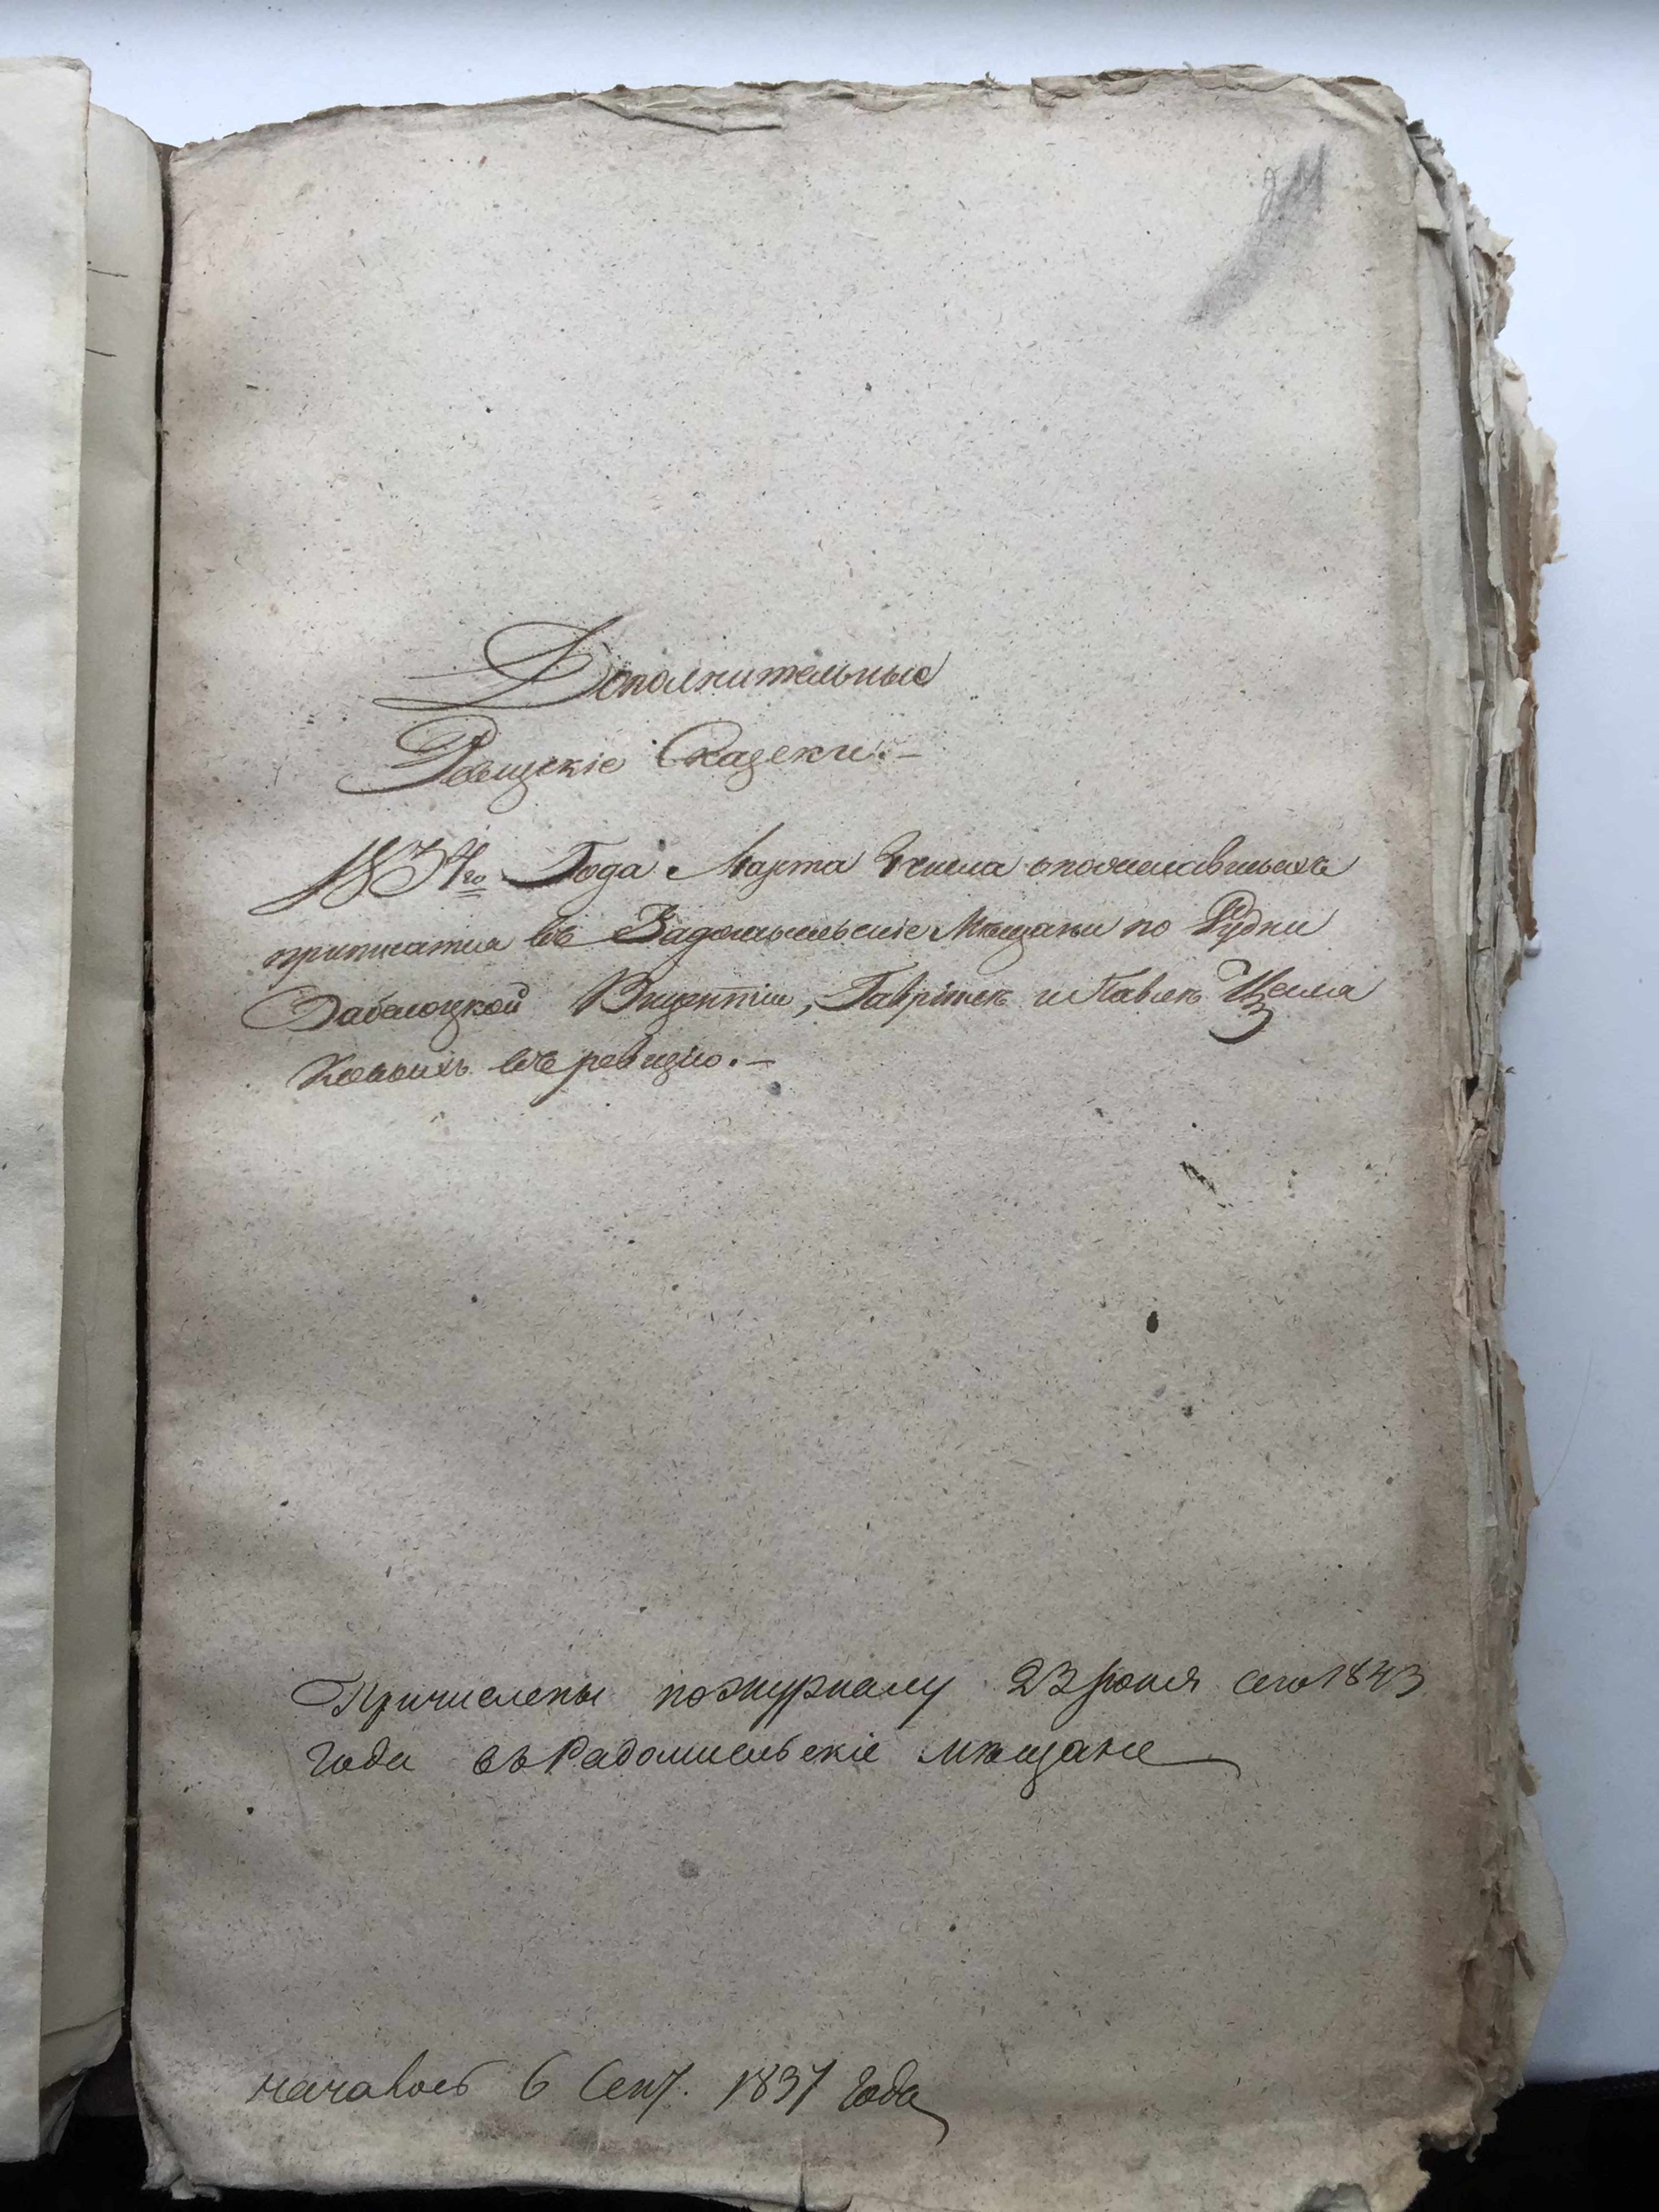 Дополнительные
Ревизскіе Сказски. —
1834го Года Марта Числа о пожелавшыхъ
приписатця въ Радомысльскіе Мѣщаны по Рудни
Забелоцкой Викентіи, Гаврілѣ и Павлѣ
въ ревизію. —
Причислены по журналу 23 Іюня сего 1843
года въ Радомысльскіе мѣщане
началось 6 Сент. 1837 года